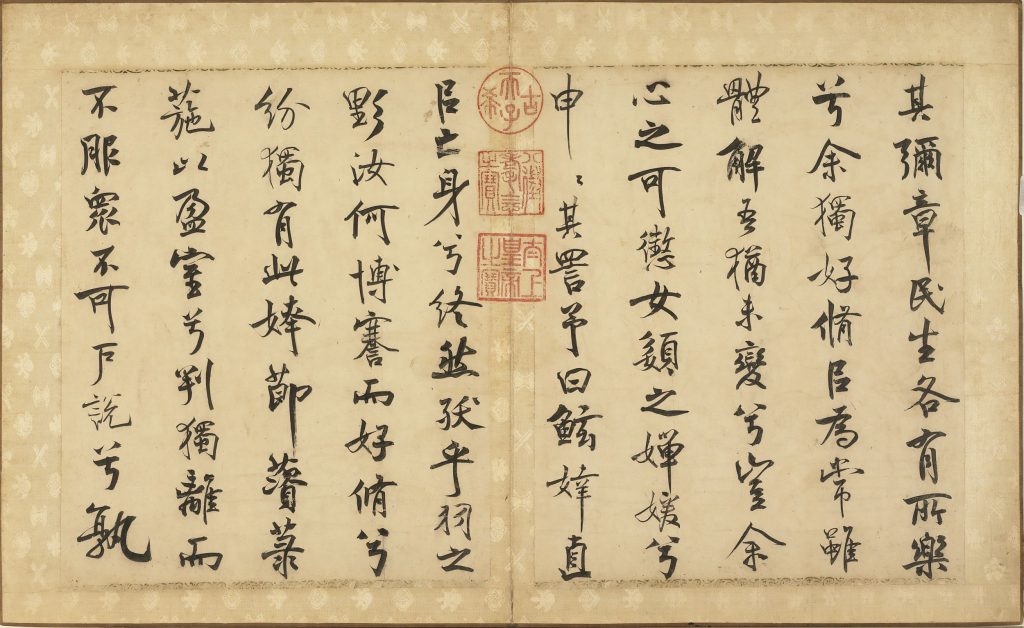 其彌章民生各有所樂
兮余獨好脩㠯為常雖
體解吾猶未變兮豈余
心之可懲女之嬋媛兮
申〻其詈予曰鮌婞直
㠯亡身兮終然殀乎羽之
野汝何博謇而好脩兮
紛獨有此姱節薋菉
葹以盈室兮判獨離而
不服眾不可戶說兮孰
古希天子
八徵耄念之寶
太上皇帝之寶